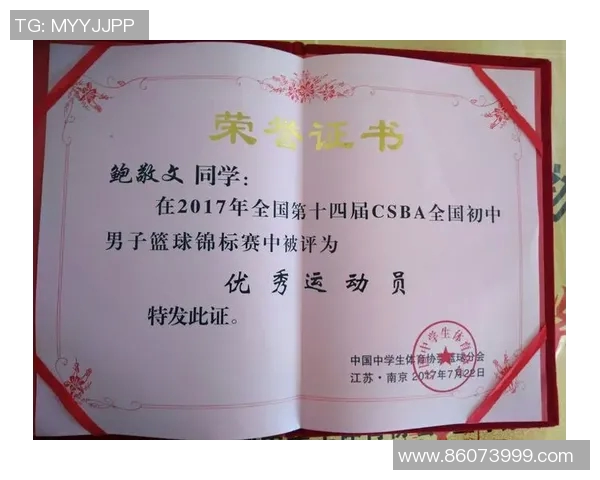 TG: MYYJJPP
荣誉证书
鲍敬文 同学：
在2017年全国第十四届CSBA全国初中
男子篮球锦标赛中被评为
优秀运动员
特发此证。
中国中学生体育协会篮球分会
江苏·南京 2017年7月22日
www.86073999.com